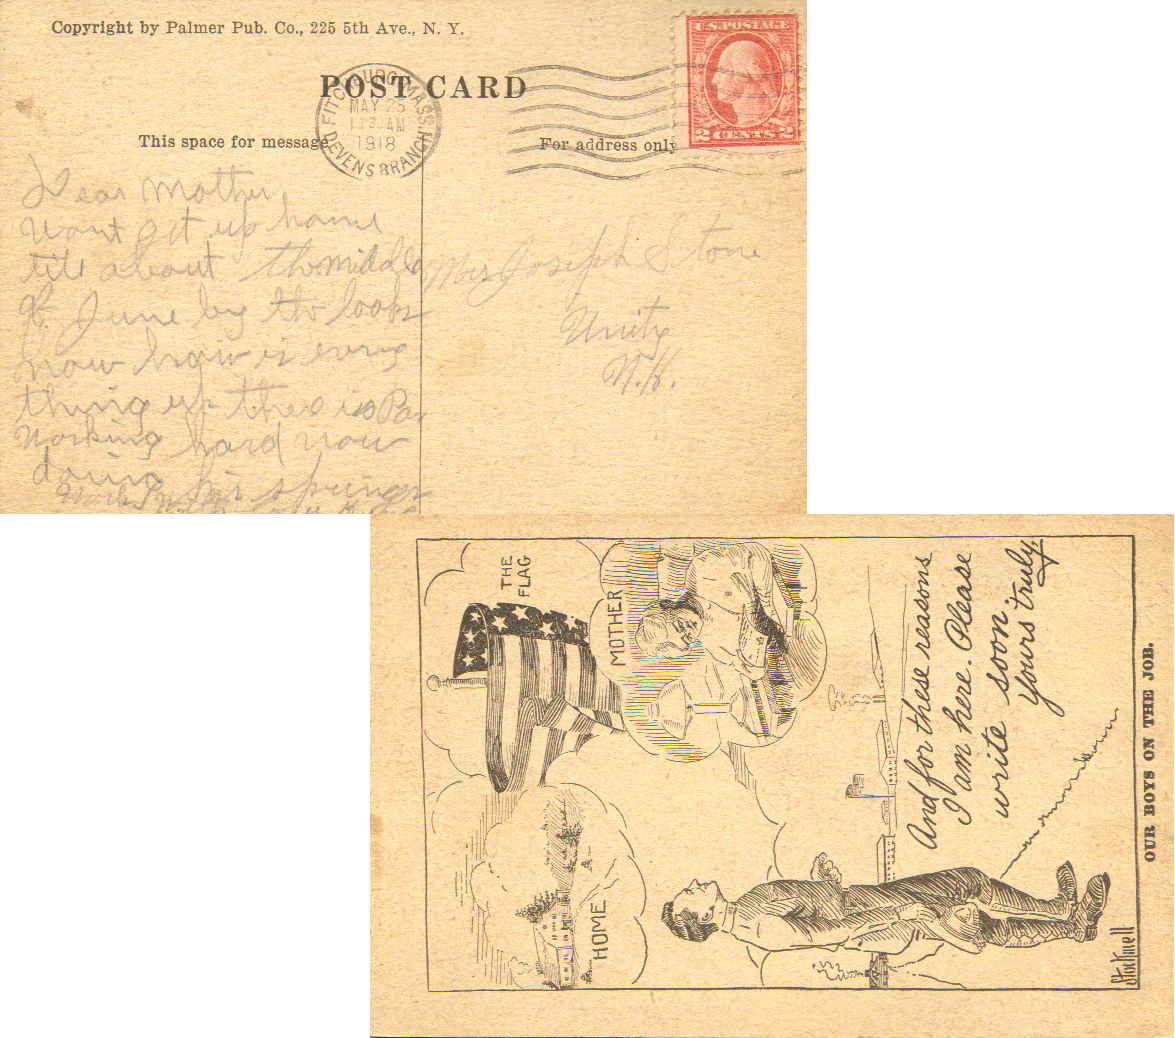 Copyright by Palmer Pub. Co., 225 5th Ave., N. Y.
POST CARD
This space for message
For address only
U.S. POSTAGE
2 CENTS 2
FITCHBURG, MASS.
MAY 25
AM
1918
DEVENS BRANCH
Dear Mother,
Wont get up home
till about th middle
of June by the looks
now how is every
thing up ther is Pa
Working hard now
doing his spring
Work
Mrs Joseph Stone
Unity
N.H.
THE
FLAG
MOTHER
HOME
And for these reasons
I am here. Please
write soon.
Yours truly,
Stockwell
OUR BOYS ON THE JOB.